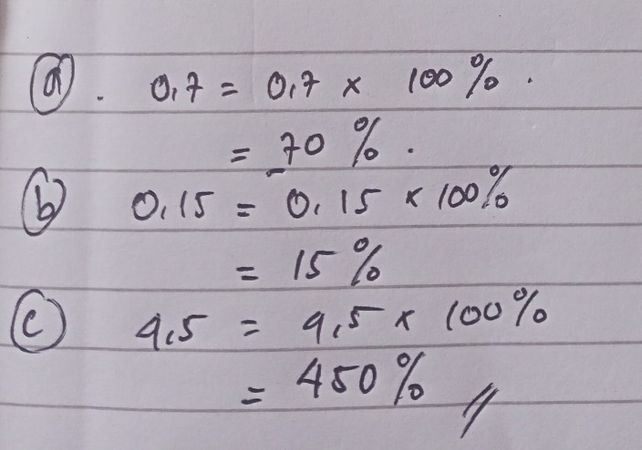 (a). 0,7 = 0,7 x 100%.
= 70%.
(b) 0,15 = 0,15 x 100%
= 15%
(c) 4,5 = 4,5 x 100%
= 450% //